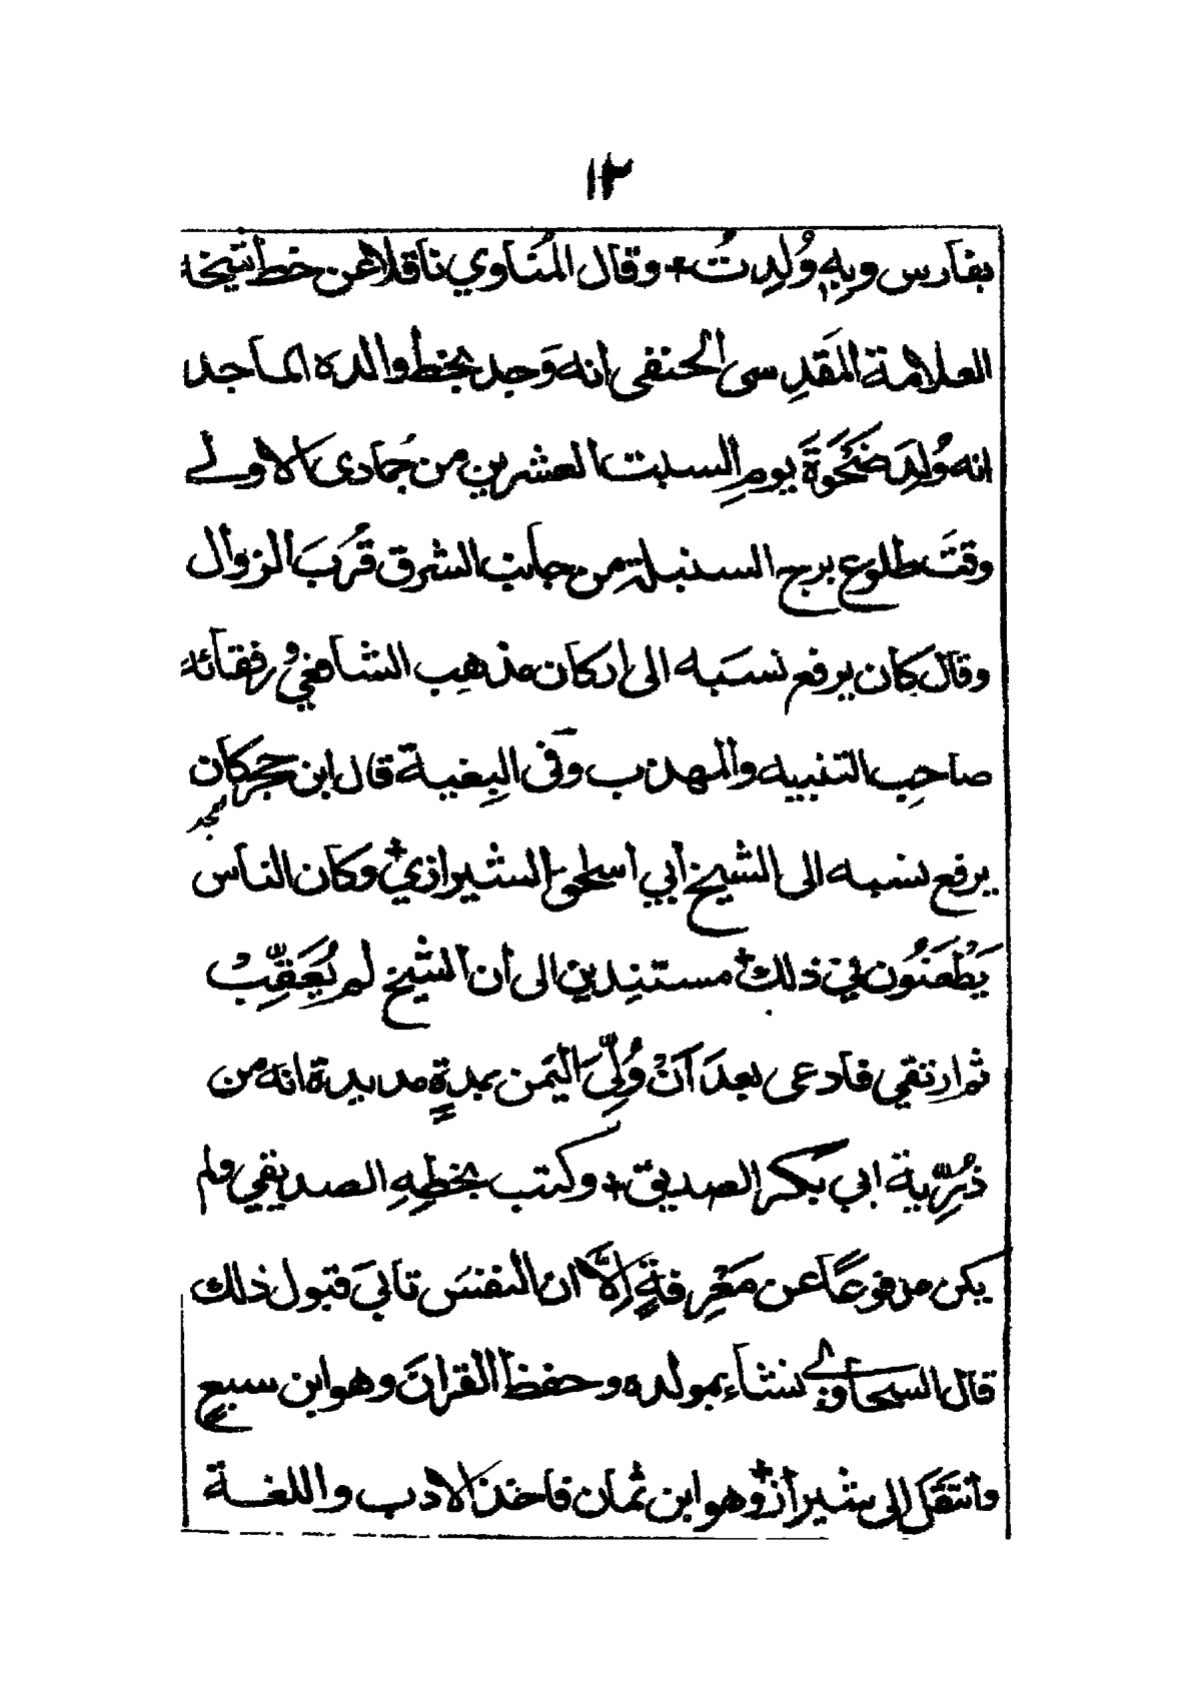 ١٢
بفارس وبِهِ وُلِدتُ + وقال المُنَاوي ناقلا عن خط شيخه
العلامة المَقدِسى الحنفى انه وَجد بخط والده الماجد
انه وُلِدَ ضَحْوَةَ يومِ السبت العشرين من جُمادى الاولے
وقتَ طلوع برج السنبلة من جانب الشرق قُرَبَ الزوال
وقال كان يرفع نسَبه الى اركان مذهب الشافعي ورفقائه
صاحب التنبيه والمهذب وَفى البِغية قال ابن حجر كان
المجد
يرفع نسبه الى الشيخ أبي اسحٰق الشيرازي + وكان الناس
يَطْعَنُون في ذلك + مستندين الى أن الشيخ لم يُعَقِّبْ
ثم ارتقي فادعى بعدَ اَنْ وُلِّىَ اليَمن بمدةٍ مديدة انه من
ذُرِّية ابي بكر الصديق + وكتب بخطِهِ الصديقي ولم
يكن مدفوعًا عن مَعْرِفةٍ إلَّا ان النفسَ تابيَ قبول ذلك
قال السخاوي نشاء بمولده وحفظ القرانَ وهو ابن سبعٍ
وانتقل الى شيراز + وهو ابن ثمان فاخذ الادب واللغة